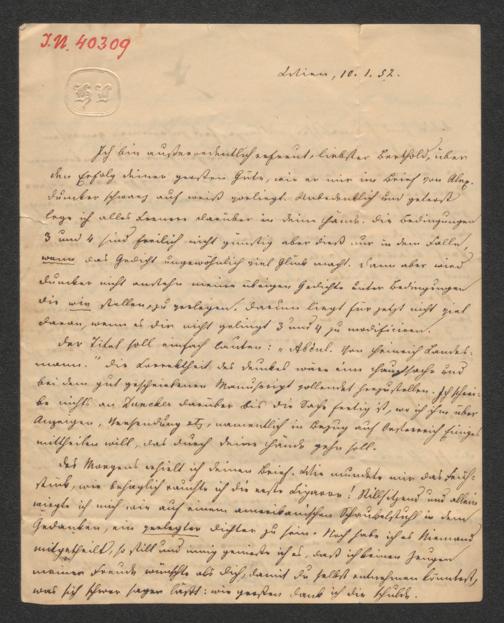 I.N. 40309
HL
Wien, 10. 1. 52.
Ich bin außerordentlich erfreut, liebster Berthold, über
den Erfolg deiner großen Güte, wie er mir im Brief von Alex.
Duncker schwarz auf weiß vorliegt. Unbedenklich und getrost
lege ich alles Fernere darüber in deine Hände. Die Bedingungen
3 und 4 sind freilich nicht günstig aber dieß nur in dem Falle,
wenn das Gedicht ungewöhnlich viel Glück macht. Dann aber wird
Duncker nicht anstehn meine übrigen Gedichte unter Bedingungen
die wir stellen, zu verlegen. Darum liegt für jetzt nicht viel
daran, wenn es dir nicht gelingt 3 und 4 zu modificiren.
Der Titel soll einfach lauten: „Abdul. Von Heinrich Landes-
mann." Die Correktheit des Druckes wäre eine Hauptsache und
bei dem gut geschriebenen Manuscript vollendet herzustellen. Ich schrei-
be nichts an Duncker darüber bis die Sache fertig ist, wo ich ihm über
Anzeigen, Versendung etc, namentlich in Bezug auf Oesterreich Einiges
mittheilen will, das durch deine Hände gehn soll.
Des Morgens erhielt ich deinen Brief. Wie mundete mir das Früh-
stück, wie behaglich rauchte ich die erste Cigarre! Stillsitzend und allein
wiegte ich mich wie auf einem amerikanischen Schaukelstuhl in dem
Gedanken, ein verlegter Dichter zu sein. Noch habe ich es Niemand
mitgetheilt, so still und innig genieße ich es, daß ich keinen Zeugen
meiner Freude wünschte als dich, damit du selbst entnehmen könntest,
was sich schwer sagen läßt: wie großen Dank ich dir schulde.